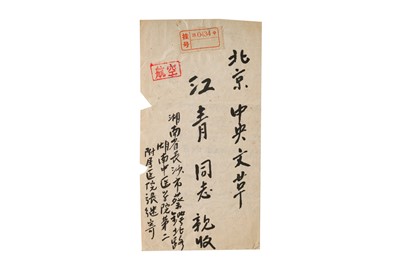 挂号
航空
北京 中央文革
江青 同志 親收
湖南省長沙市蔡鍔北路
湖南中医学院第二
附属医院張继寄